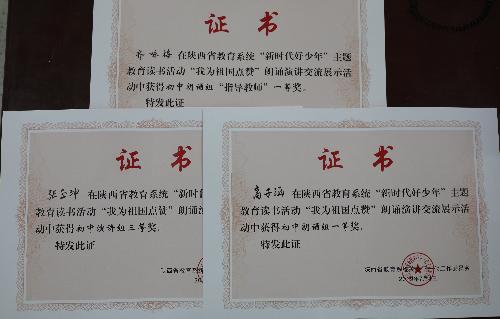 证书
乔咏梅 在陕西省教育系统“新时代好少年”主题
教育读书活动“我为祖国点赞”朗诵演讲交流展示活
动中获得初中朗诵组“指导教师”一等奖。
特发此证
证书
在陕西省教育系统“新时
教育读书活动“我为祖国点赞”朗诵
动中获得初中演讲组三等奖。
特发此证
陕西省教育系统
证书
高子涵 在陕西省教育系统“新时代好少年”主题
教育读书活动“我为祖国点赞”朗诵演讲交流展示活
动中获得初中朗诵组一等奖。
特发此证
陕西省教育系统
工作委员会